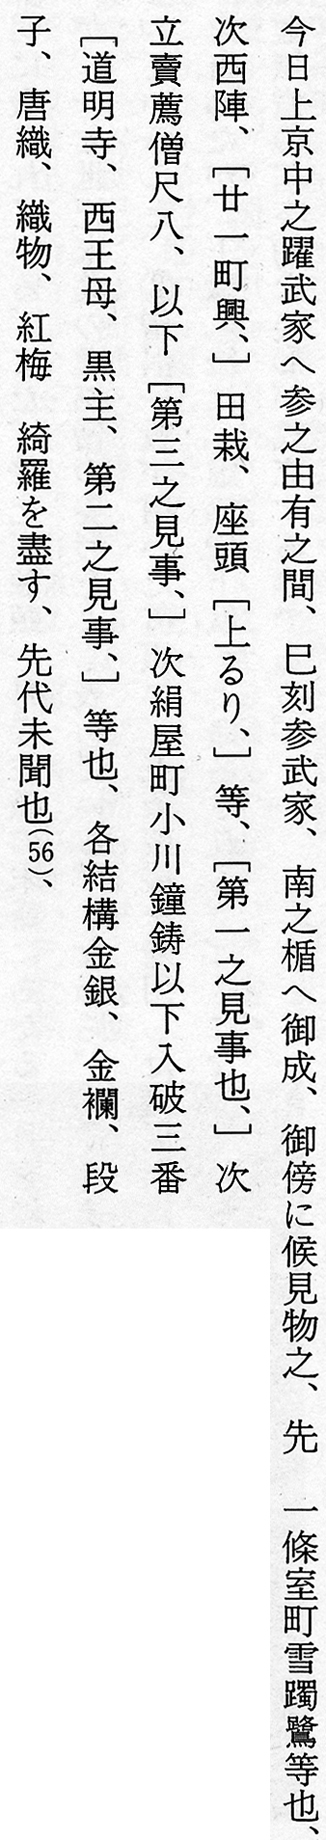 今日上京中之躍武家へ参之由有之間、巳刻参武家、南之楯へ御成、御傍に候見物之、先　一條室町雪躅鷺等也、
次西陣、［廿一町興、］田栽、座頭［上るり、］等、［第一之見事也、］次
立賣薦僧尺八、以下［第三之見事、］次絹屋町小川鐘鋳以下入破三番
［道明寺、西王母、黒主、第二之見事、］等也、各結構金銀、金襴、段
子、唐織、織物、紅梅　綺羅を盡す、先代未聞也(56)、